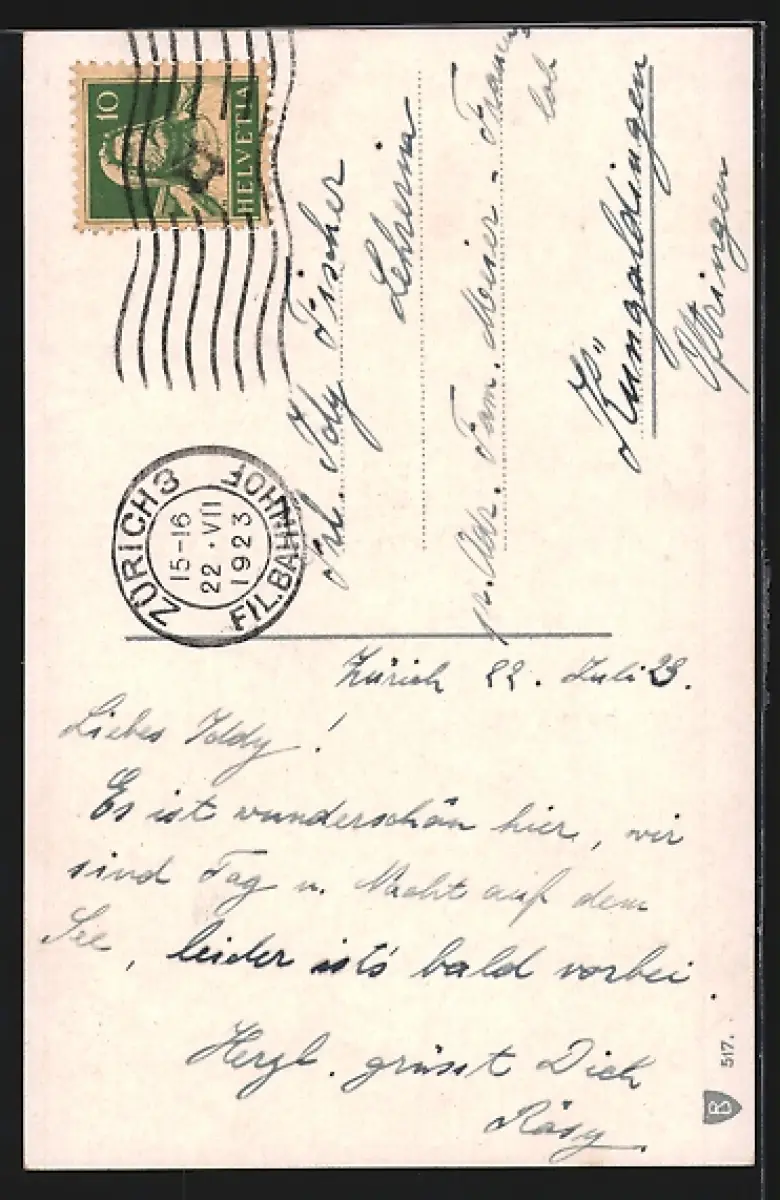 10
HELVETIA
ZÜRICH 3
FIL. BAHNHOF
15-16
22 · VII
1923
Frl. Idy Fischer
Lehrerin
pr. Adr. Fam. Meier -
Küngoldingen
Oftringen
Zürich 22. Juli 23.
Liebes Iddy !
Es ist wunderschön hier, wir
sind Tag u. Nacht auf dem
See, leider ist's bald vorbei.
Herzl. grüsst Dich
Rösy.
517.
B